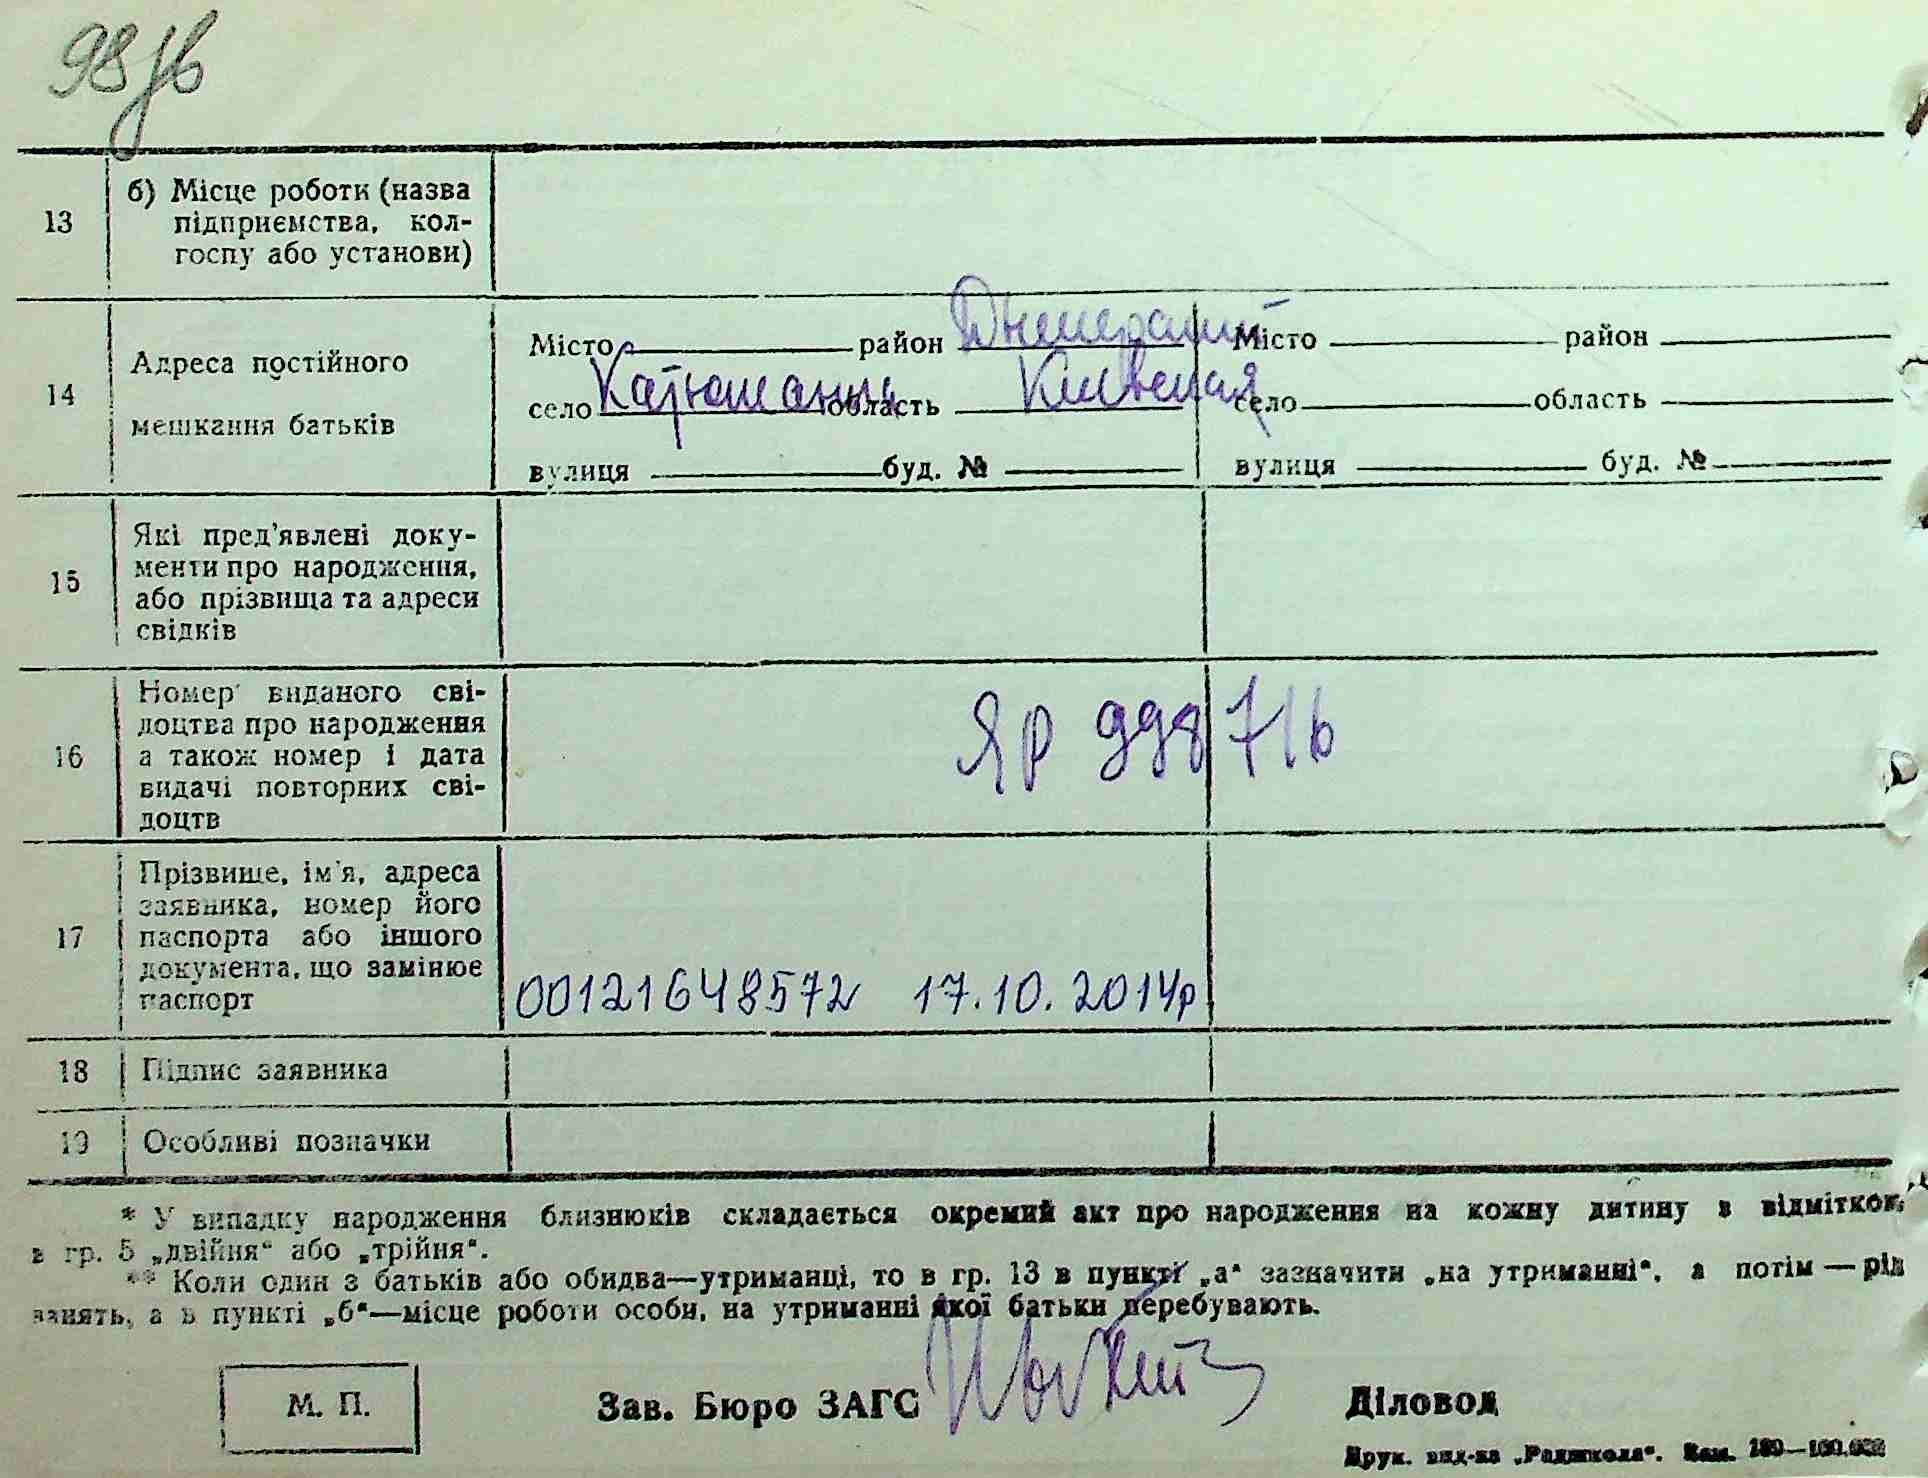 98 зв
13
б) Місце роботи (назва
підприємства, кол-
госпу або установи)
14
Адреса постійного
мешкання батьків
Місто район Димерский Місто район
село Катюшанка область Киевская село область
вулиця буд. № вулиця буд. №
15
Які пред'явлені доку-
менти про народження,
або прізвища та адреси
свідків
16
Номер виданого сві-
доцтва про народження
а також номер і дата
видачі повторних сві-
доцтв
ЯР 998716
17
Прізвище, ім'я, адреса
заявника, номер його
паспорта або іншого
документа, що замінює
паспорт
00121648572 17.10.2014р
18 Підпис заявника
19 Особливі позначки
* У випадку народження близнюків складається окремий акт про народження на кожну дитину з відміткою
в гр. 5 „двійня“ або „трійня“.
** Коли один з батьків або обидва—утриманці, то в гр. 13 в пункті „а“ зазначити „на утриманні“, а потім — рід
занять, а в пункті „б“—місце роботи особи, на утриманні якої батьки перебувають.
М. П. Зав. Бюро ЗАГС Діловод
Друк. вид-ва „Радшкола“. Зам.